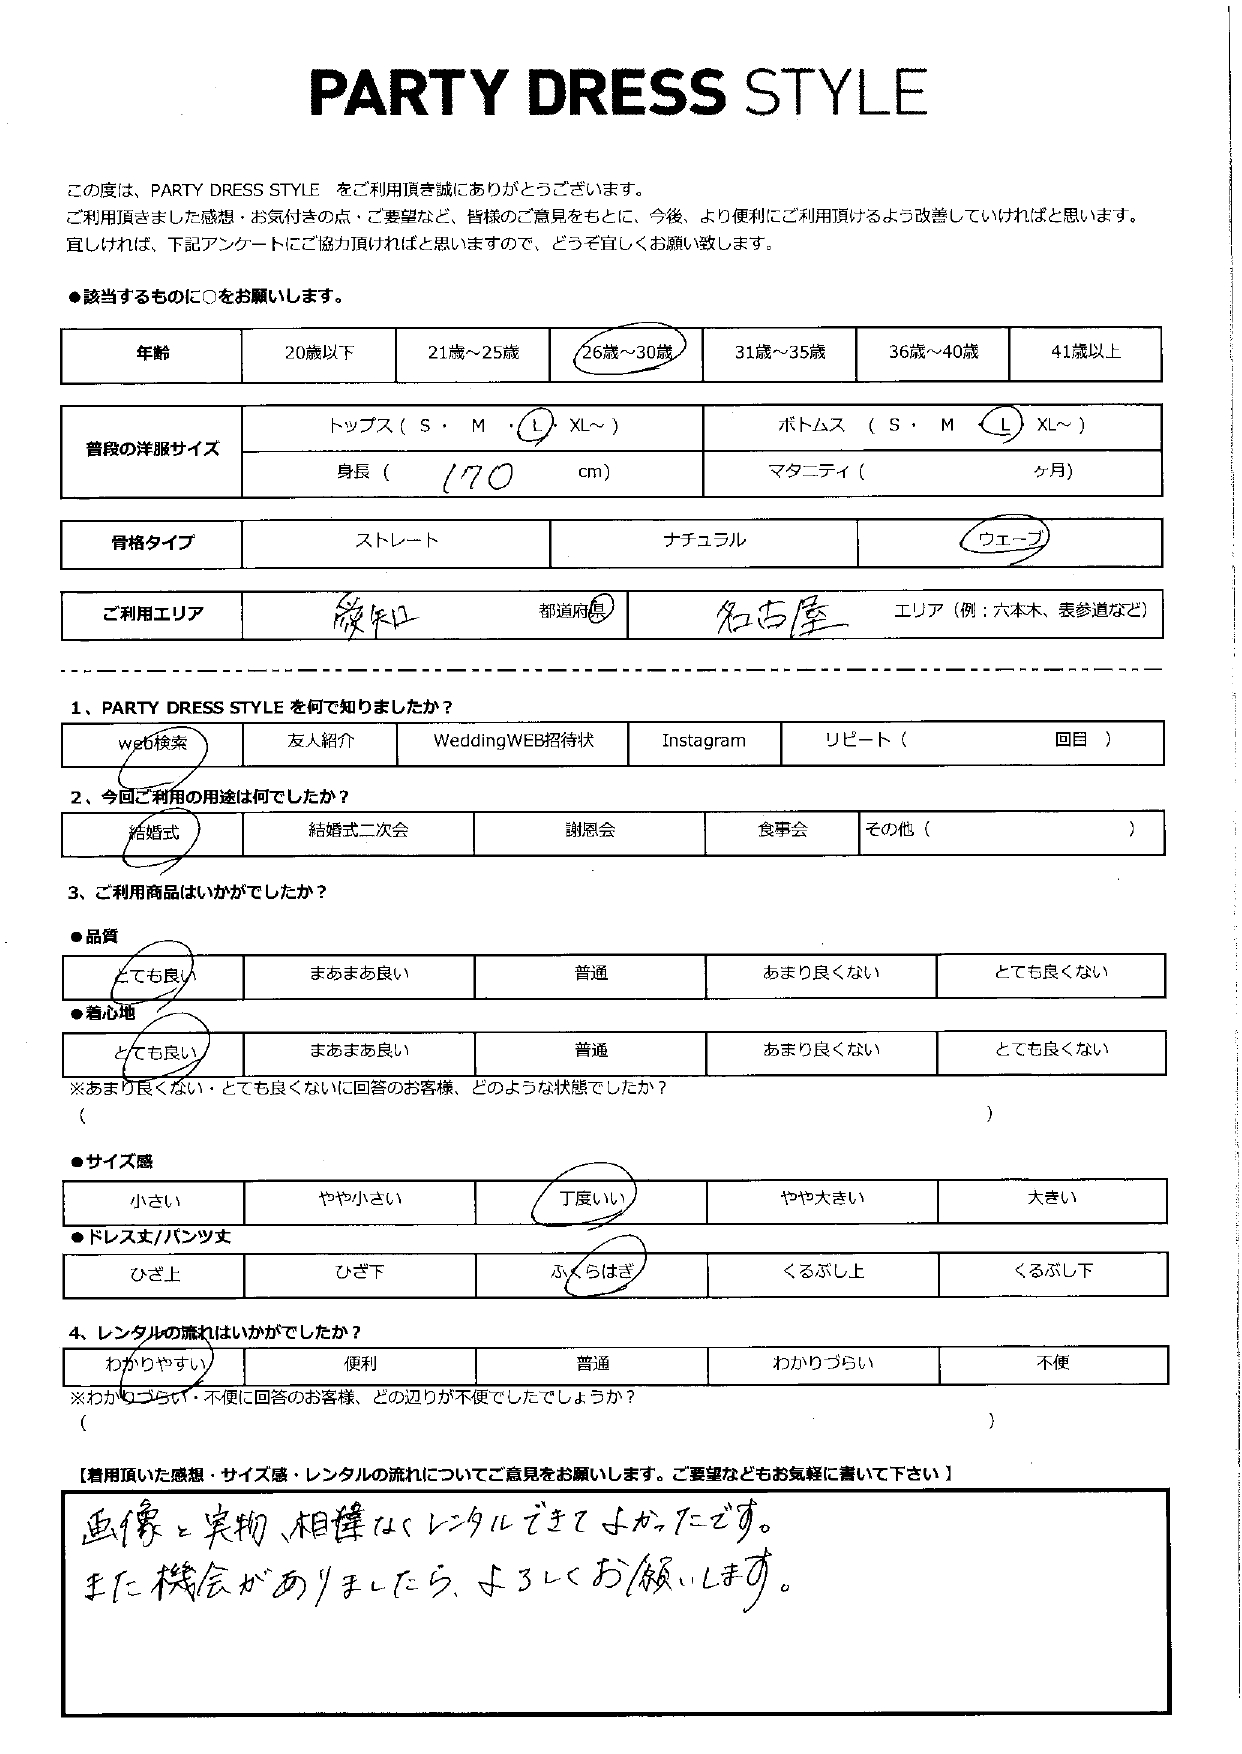 PARTY DRESS STYLE
この度は、PARTY DRESS STYLE をご利用頂き誠にありがとうございます。
ご利用頂きました感想・お気付きの点・ご要望など、皆様のご意見をもとに、今後、より便利にご利用頂けるよう改善していければと思います。
宜しければ、下記アンケートにご協力頂ければと思いますので、どうぞ宜しくお願い致します。
●該当するものに○をお願いします。
年齢 20歳以下 21歳～25歳 26歳～30歳 31歳～35歳 36歳～40歳 41歳以上
普段の洋服サイズ
トップス ( S ・ M ・ L ・ XL～ ) ボトムス ( S ・ M ・ L ・ XL～ )
身長 ( 170 cm) マタニティ ( ヶ月)
骨格タイプ ストレート ナチュラル ウェーブ
ご利用エリア 愛知 都道府県 名古屋 エリア（例：六本木、表参道など）
1、PARTY DRESS STYLE を何で知りましたか？
web検索 友人紹介 WeddingWEB招待状 Instagram リピート（ 回目 ）
2、今回ご利用の用途は何でしたか？
結婚式 結婚式二次会 謝恩会 食事会 その他（ ）
3、ご利用商品はいかがでしたか？
●品質
とても良い まあまあ良い 普通 あまり良くない とても良くない
●着心地
とても良い まあまあ良い 普通 あまり良くない とても良くない
※あまり良くない・とても良くないに回答のお客様、どのような状態でしたか？
( )
●サイズ感
小さい やや小さい 丁度いい やや大きい 大きい
●ドレス丈/パンツ丈
ひざ上 ひざ下 ふくらはぎ くるぶし上 くるぶし下
4、レンタルの流れはいかがでしたか？
わかりやすい 便利 普通 わかりづらい 不便
※わかりづらい・不便に回答のお客様、どの辺りが不便でしたでしょうか？
( )
【着用頂いた感想・サイズ感・レンタルの流れについてご意見をお願いします。ご要望などもお気軽に書いて下さい 】
画像と実物、相違なくレンタルできてよかったです。
また機会がありましたら、よろしくお願いします。